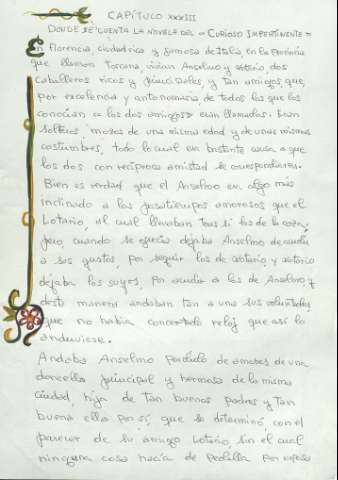 CAPÍTULO XXXIII
DONDE SE CUENTA LA NOVELA DEL "CURIOSO IMPERTINENTE"
En Florencia, ciudad rica y famosa de Italia, en la Provincia
que llaman Toscana vivían Anselmo y Lotario dos
caballeros ricos y principales, y tan amigos, que,
por excelencia y antonomasia de todos los que los
conocían "los dos amigos" eran llamados. Eran
solteros, mozos de una misma edad y de unas mismas
costumbres, todo lo cual era bastante causa a que
los dos con recíproca amistad se correspondiesen.
Bien es verdad que el Anselmo era algo más
inclinado a los pasatiempos amorosos que el
Lotario, al cual llevaban tras sí los de la caza,
pero, cuando se ofrecía dejaba Anselmo de acudir
a sus gustos, por seguir los de Lotario, y Lotario
dejaba los suyos, por acudir a los de Anselmo, y
desta manera andaban tan a una sus voluntades,
que no había concertado reloj que así lo
anduviese.
Andaba Anselmo perdido de amores de una
doncella principal y hermosa de la misma
ciudad, hija de tan buenos padres y tan
buena ella por sí, que se determinó, con el
parecer de su amigo Lotario, sin el cual
ninguna cosa hacía, de pedilla por esposa